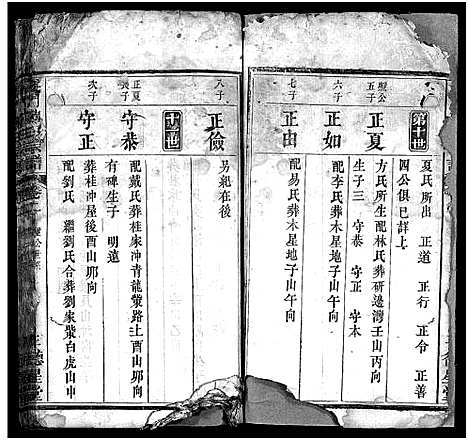 第十世
夏氏所出 正道 正行 正令 正善
四公俱已詳上
五子
正夏
方氏所生配林氏葬研邊灣壬山丙向
生子三 守恭 守正 守本
六子
正如
配李氏葬木星地子山午向
七子
正由
配易氏葬木星地子山午向
八子
正儉
另紀在後
十一世
正夏
長子
守恭
配戴氏葬桂家冲青龍嘴路上酉山夘向
有碑生子 明遠
次子
守正
葬桂冲屋後酉山夘向
配劉氏 繼劉氏合葬劉家嘴白虎山中